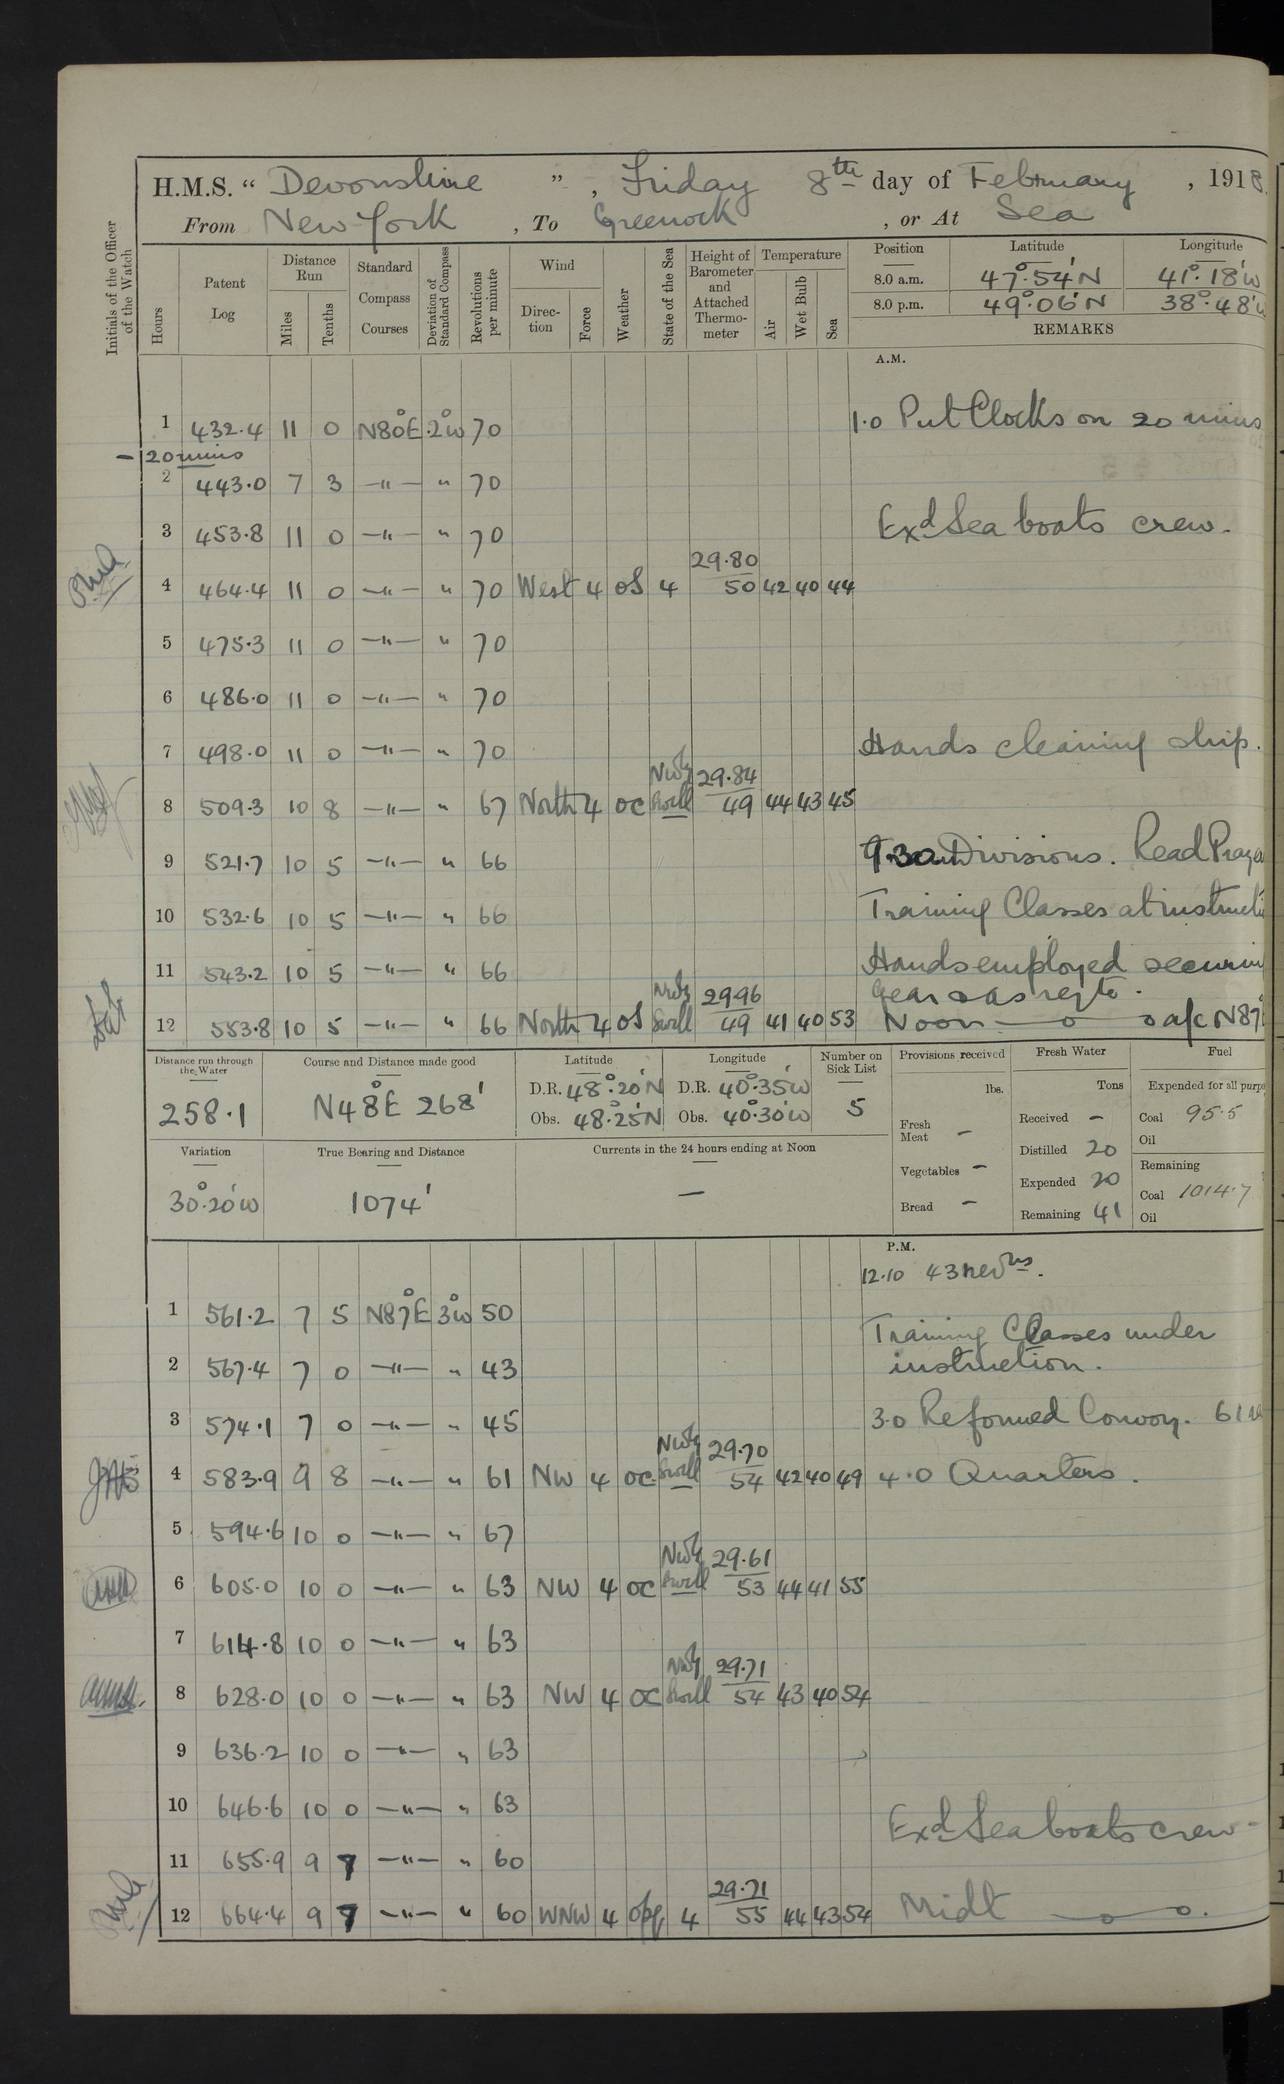 H.M.S. “ Devonshire ” , Friday 8th day of February , 1918.
From New York , To Greenock , or At Sea
Initials of the Officer of the Watch
Hours
Patent Log
Distance Run
Miles
Tenths
Standard Compass Courses
Deviation of Standard Compass
Revolutions per minute
Wind
Direc-tion
Force
Weather
State of the Sea
Height of Barometer and Attached Thermo-meter
Temperature
Air
Wet Bulb
Sea
Position Latitude Longitude
8.0 a.m. 47°.54'N 41°.18'W
8.0 p.m. 49°.06'N 38°.48'W
REMARKS
A.M.
1 432.4 11 0 N80°E .2°W 70 1.0 Put Clocks on 20 mins
- 20 mins
2 443.0 7 3 —"— " 70
3 453.8 11 0 —"— " 70 Exd Sea boats crew.
4 464.4 11 0 —"— " 70 West 4 OS 4 29.80 50 42 40 44
5 475.3 11 0 —"— " 70
6 486.0 11 0 —"— " 70
7 498.0 11 0 —"— " 70 Hands cleaning ship.
8 509.3 10 8 —"— " 67 North 4 OC Nwly Swell 29.84 49 44 43 45
9 521.7 10 5 —"— " 66 9.30 Divisions. Read
10 532.6 10 5 —"— " 66 Training Classes at
11 543.2 10 5 —"— " 66 Hands employed
Gear & as reqte.
12 553.8 10 5 —"— " 66 North 4 OS Nwly Swell 29.96 49 41 40 53 Noon —o— o a/c N87
Distance run through the Water
258.1
Course and Distance made good
N48°E 268'
Latitude
D.R. 48°.20'N
Obs. 48.25N
Longitude
D.R. 40°.35'W
Obs. 40.30'W
Number on Sick List
5
Provisions received
lbs.
Fresh Meat —
Vegetables —
Bread —
Fresh Water
Tons
Received —
Distilled 20
Expended 20
Remaining 41
Fuel
Expended for all
Coal 95.5
Oil
Remaining
Coal 1014.7
Oil
Variation
30°.20'W
True Bearing and Distance
1074'
Currents in the 24 hours ending at Noon
—
P.M.
12.10 43 revns.
1 561.2 7 5 N87°E 3°W 50 Training Classes under
2 567.4 7 0 —"— " 43 instruction.
3 574.1 7 0 —"— " 45 3.0 Reformed Convoy. 61
4 583.9 9 8 —"— " 61 NW 4 OC Nwly Swell 29.70 54 42 40 49 4.0 Quarters.
5 594.6 10 0 —"— " 67
6 605.0 10 0 —"— " 63 NW 4 OC Nwly Swell 29.61 53 44 41 55
7 614.8 10 0 —"— " 63
8 628.0 10 0 —"— " 63 NW 4 OC Nwly Swell 29.71 54 43 40 54
9 636.2 10 0 —"— " 63
10 646.6 10 0 —"— " 63 Exd Sea boats crew-
11 655.9 9 7 —"— " 60
12 664.4 9 7 —"— " 60 WNW 4 opq 4 29.71 55 44 43 54 Midt —o— o.